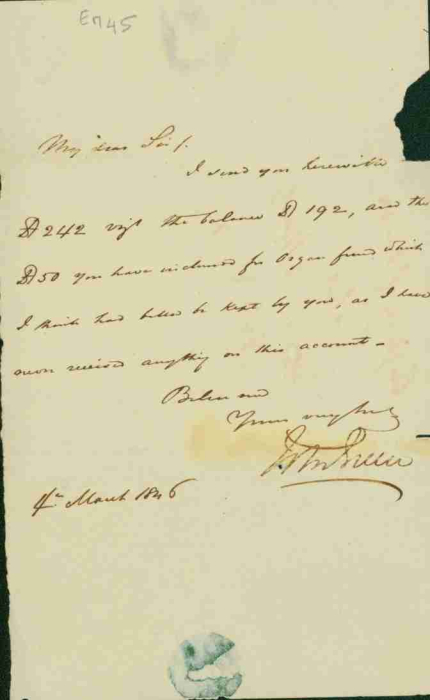 En45
My dear Sir/.
I send you herewith
D 242 vizt the balance D 192, and the
D 50 you have inclosed for Organ fund which
I think had better be kept by you, as I have
never received anything on this account -
Believe me
Yours very truly
4th March 1846